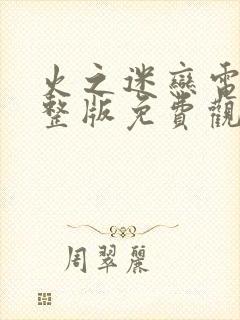 火之迷戀電
整版免費觀
周翠麗